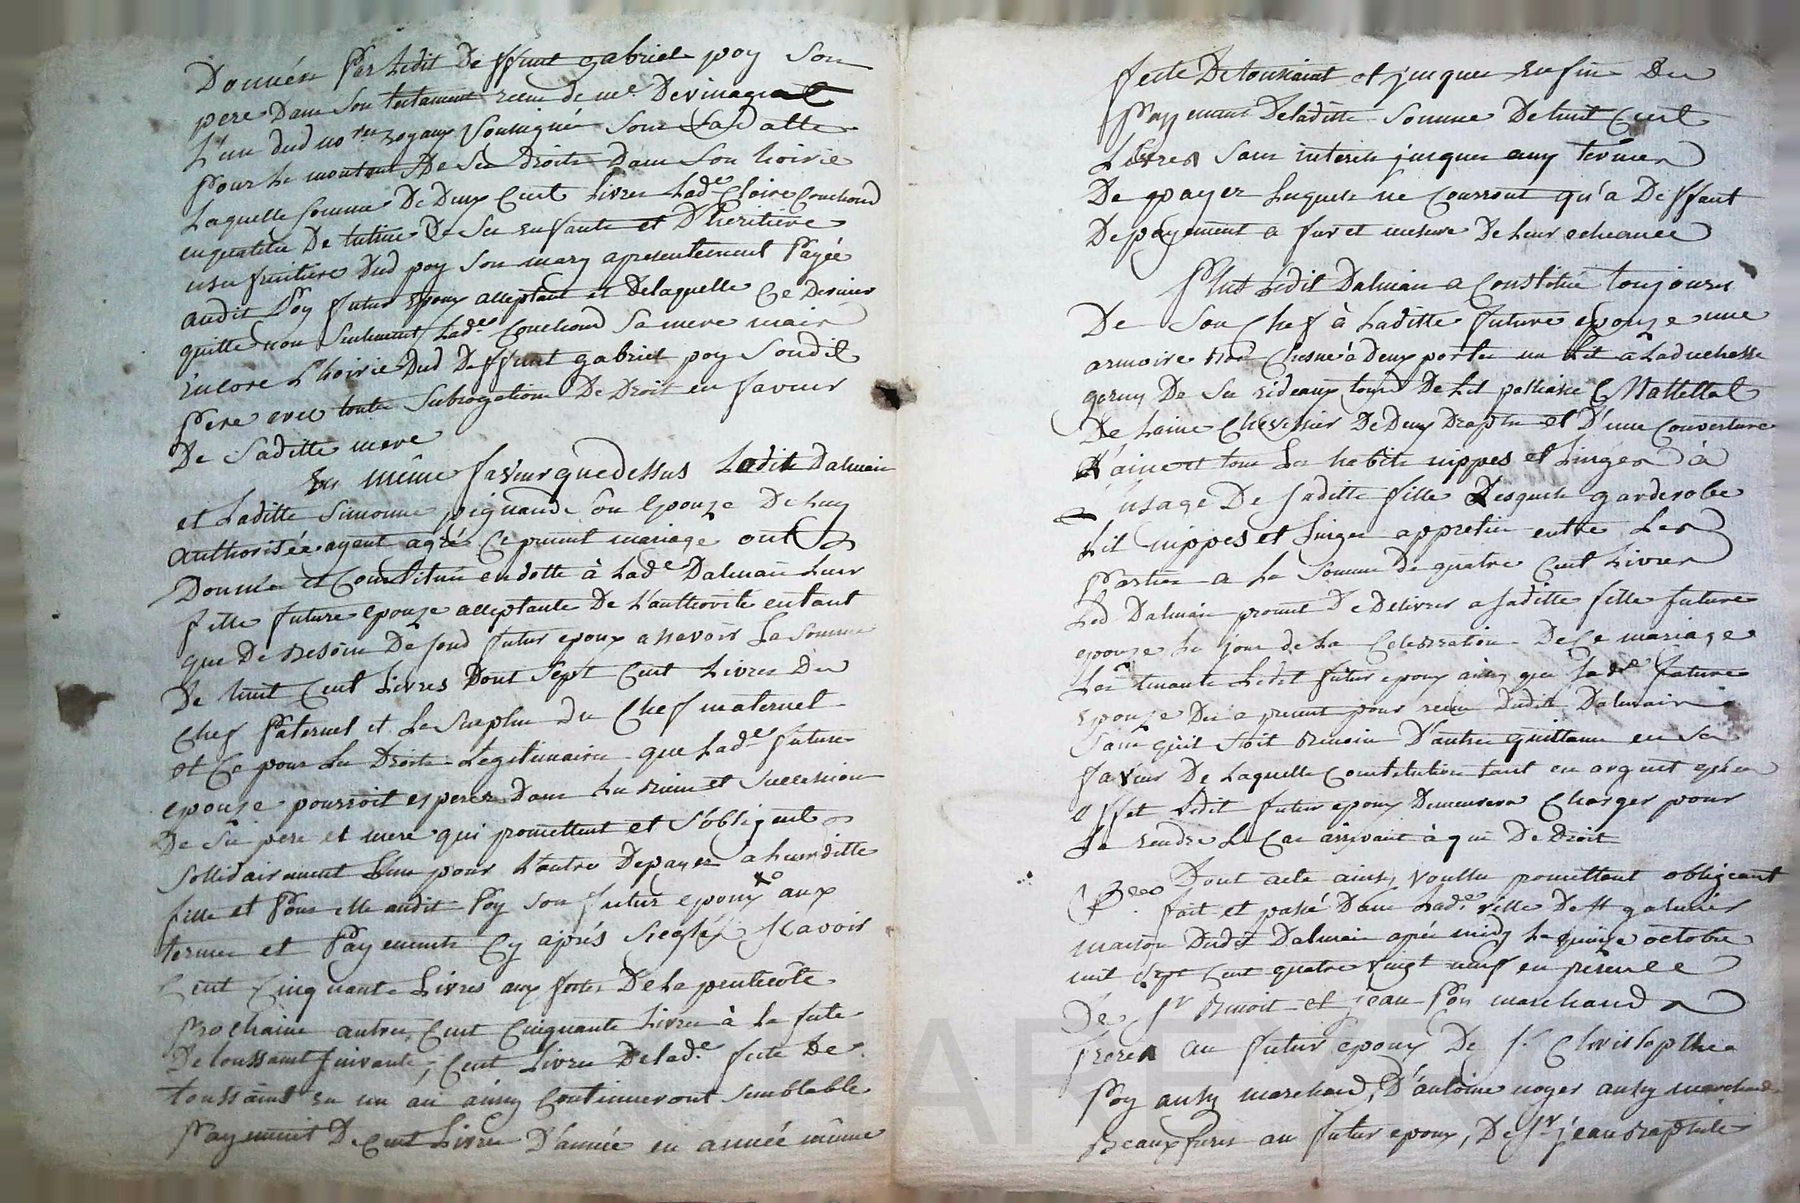 Donnée Par Ledit Deffunt gabriel poy Son
pere Dans Son testament receu de me. Devinagial
L'un dud nores royaux Soussignés Sous Sa Datte
Pour Le montant De Ses Droits Dans Son hoirie
Laquelle Somme De Deux Cent Livres Lade. Claire Couchoud
en qualité De tutrice De Ses Enfants et D'heritiere
usufruitiere Dud poy Son mary a presentement Payée
audit Poy futur Epoux acceptant et De laquelle Ce Dernier
quitte non Seulement Lade Couchoud Sa mere mais
Encore L'hoirie Dud Deffunt gabriel poy Sondit
Pere avec toutes Subrogations De Droit en faveur
De Saditte mere
En même faveur que dessus Ledit Dalmais
et Laditte Simonne pignaud Son Epouze De Luy
authorisée ayant agréé Ce present mariage ont
Donnés et Constitués en dotte à Lade Dalmais Leur
fille future epouze acceptante De L'authorité en tant
que De Besoin De Sond futur epoux a Savoir La Somme
De huit Cent Livres Dont Sept Cent Livres Du
Chef Paternel et Le Surplus Du Chef maternel
et Ce pour Les Droits Legitimaires que Lade future
epouze pourroit esperer Dans Les Biens et Succession
De Ses pere et mere qui promettent et S'obligent
Sollidairement L'un pour L'autre De payer a Leurditte
fille et Pour elle audit Poy Son futur epoux aux
termes et Payements Cy après Reglés Sçavoir
Cent Cinquante Livres aux fêtes De La pentecôte
Prochaine autres Cent Cinquante Livres à La fete
De toussaint Suivante, Cent Livres De lade. fete De
toussaint En un an ainsy Continueront Semblable
Payement De Cent Livres D'année en année même
fete De toussaint et jusques En fin Du
Payement De laditte Somme De huit Cent
Livres Sans interets jusques aux termes
De payer Lesquels ne Courront qu'a Deffaut
De payement a fur et mesure De Leur echeance
Plus Ledit Dalmais a Constitué toujours
De Son Chef à Laditte future epouze une
armoire Bois Chesne à Deux portes un Lit à La duchesse
garny De Ses rideaux, tour De Lit paillasse Mattellat
De Laine Chevessier De Deux Draps et D'une Couverture
Laine et tous Les habits nippes et Linges à
L'usage De Saditte fille Lesquels garderobe
Lit nippes et Linges appretiés entre Les
Parties a La Somme De quatre Cent Livres
Led Dalmais promet De Delivrer a Saditte fille future
epouze Le jour de La Celebration De Ce mariage
Les tenants Ledit futur epoux ainsy que Lade future
Epouze Des a present pour receu Dudit Dalmais
Sans qu'il Soit Besoin D'autre quittance en Sa
faveur De Laquelle Constitution tant en argent qu'en
Effet Ledit futur epoux Demeurera Charger pour
La rendre Le Cas arrivant à qui De Droit
Dont acte ainsy Voullu promettant obligeant
fait et passé Dans Lade. Ville De St galmier
maison Dudit Dalmais après midy Le quinze octobre
mil Sept Cent quatre Vingt neuf en presence
De Sr Benoit et jean Poy marchand
freres au futur epoux De Sr. Christophle
Poy aussy marchand, D'antoine noyer aussy marchand
Beauxfreres au futur epoux, De Sr jean Baptiste